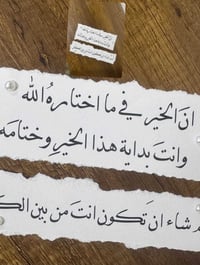 ان الخير في ما اختاره الله
وانت بداية هذا الخير وختامه
شاء ان تكون انت من بين